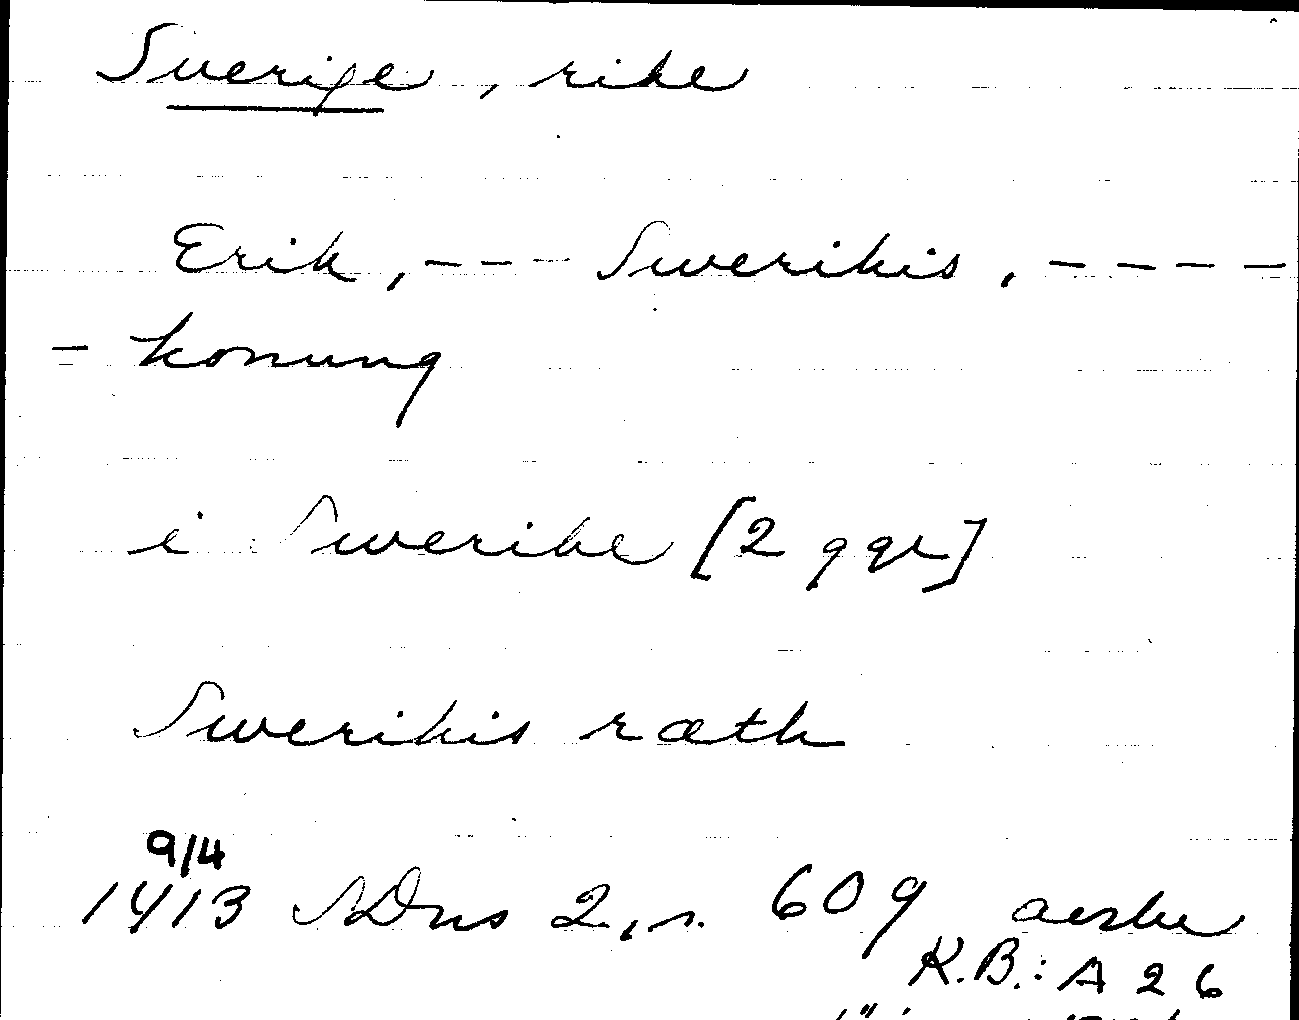 Sverige, rike
Erik, --- Swerikis, ----
- konung
i Swerike [2 ggr]
Swerikis ræth
9/4
1413 SDns 2, n. 609 avskr
K.B.: A 26